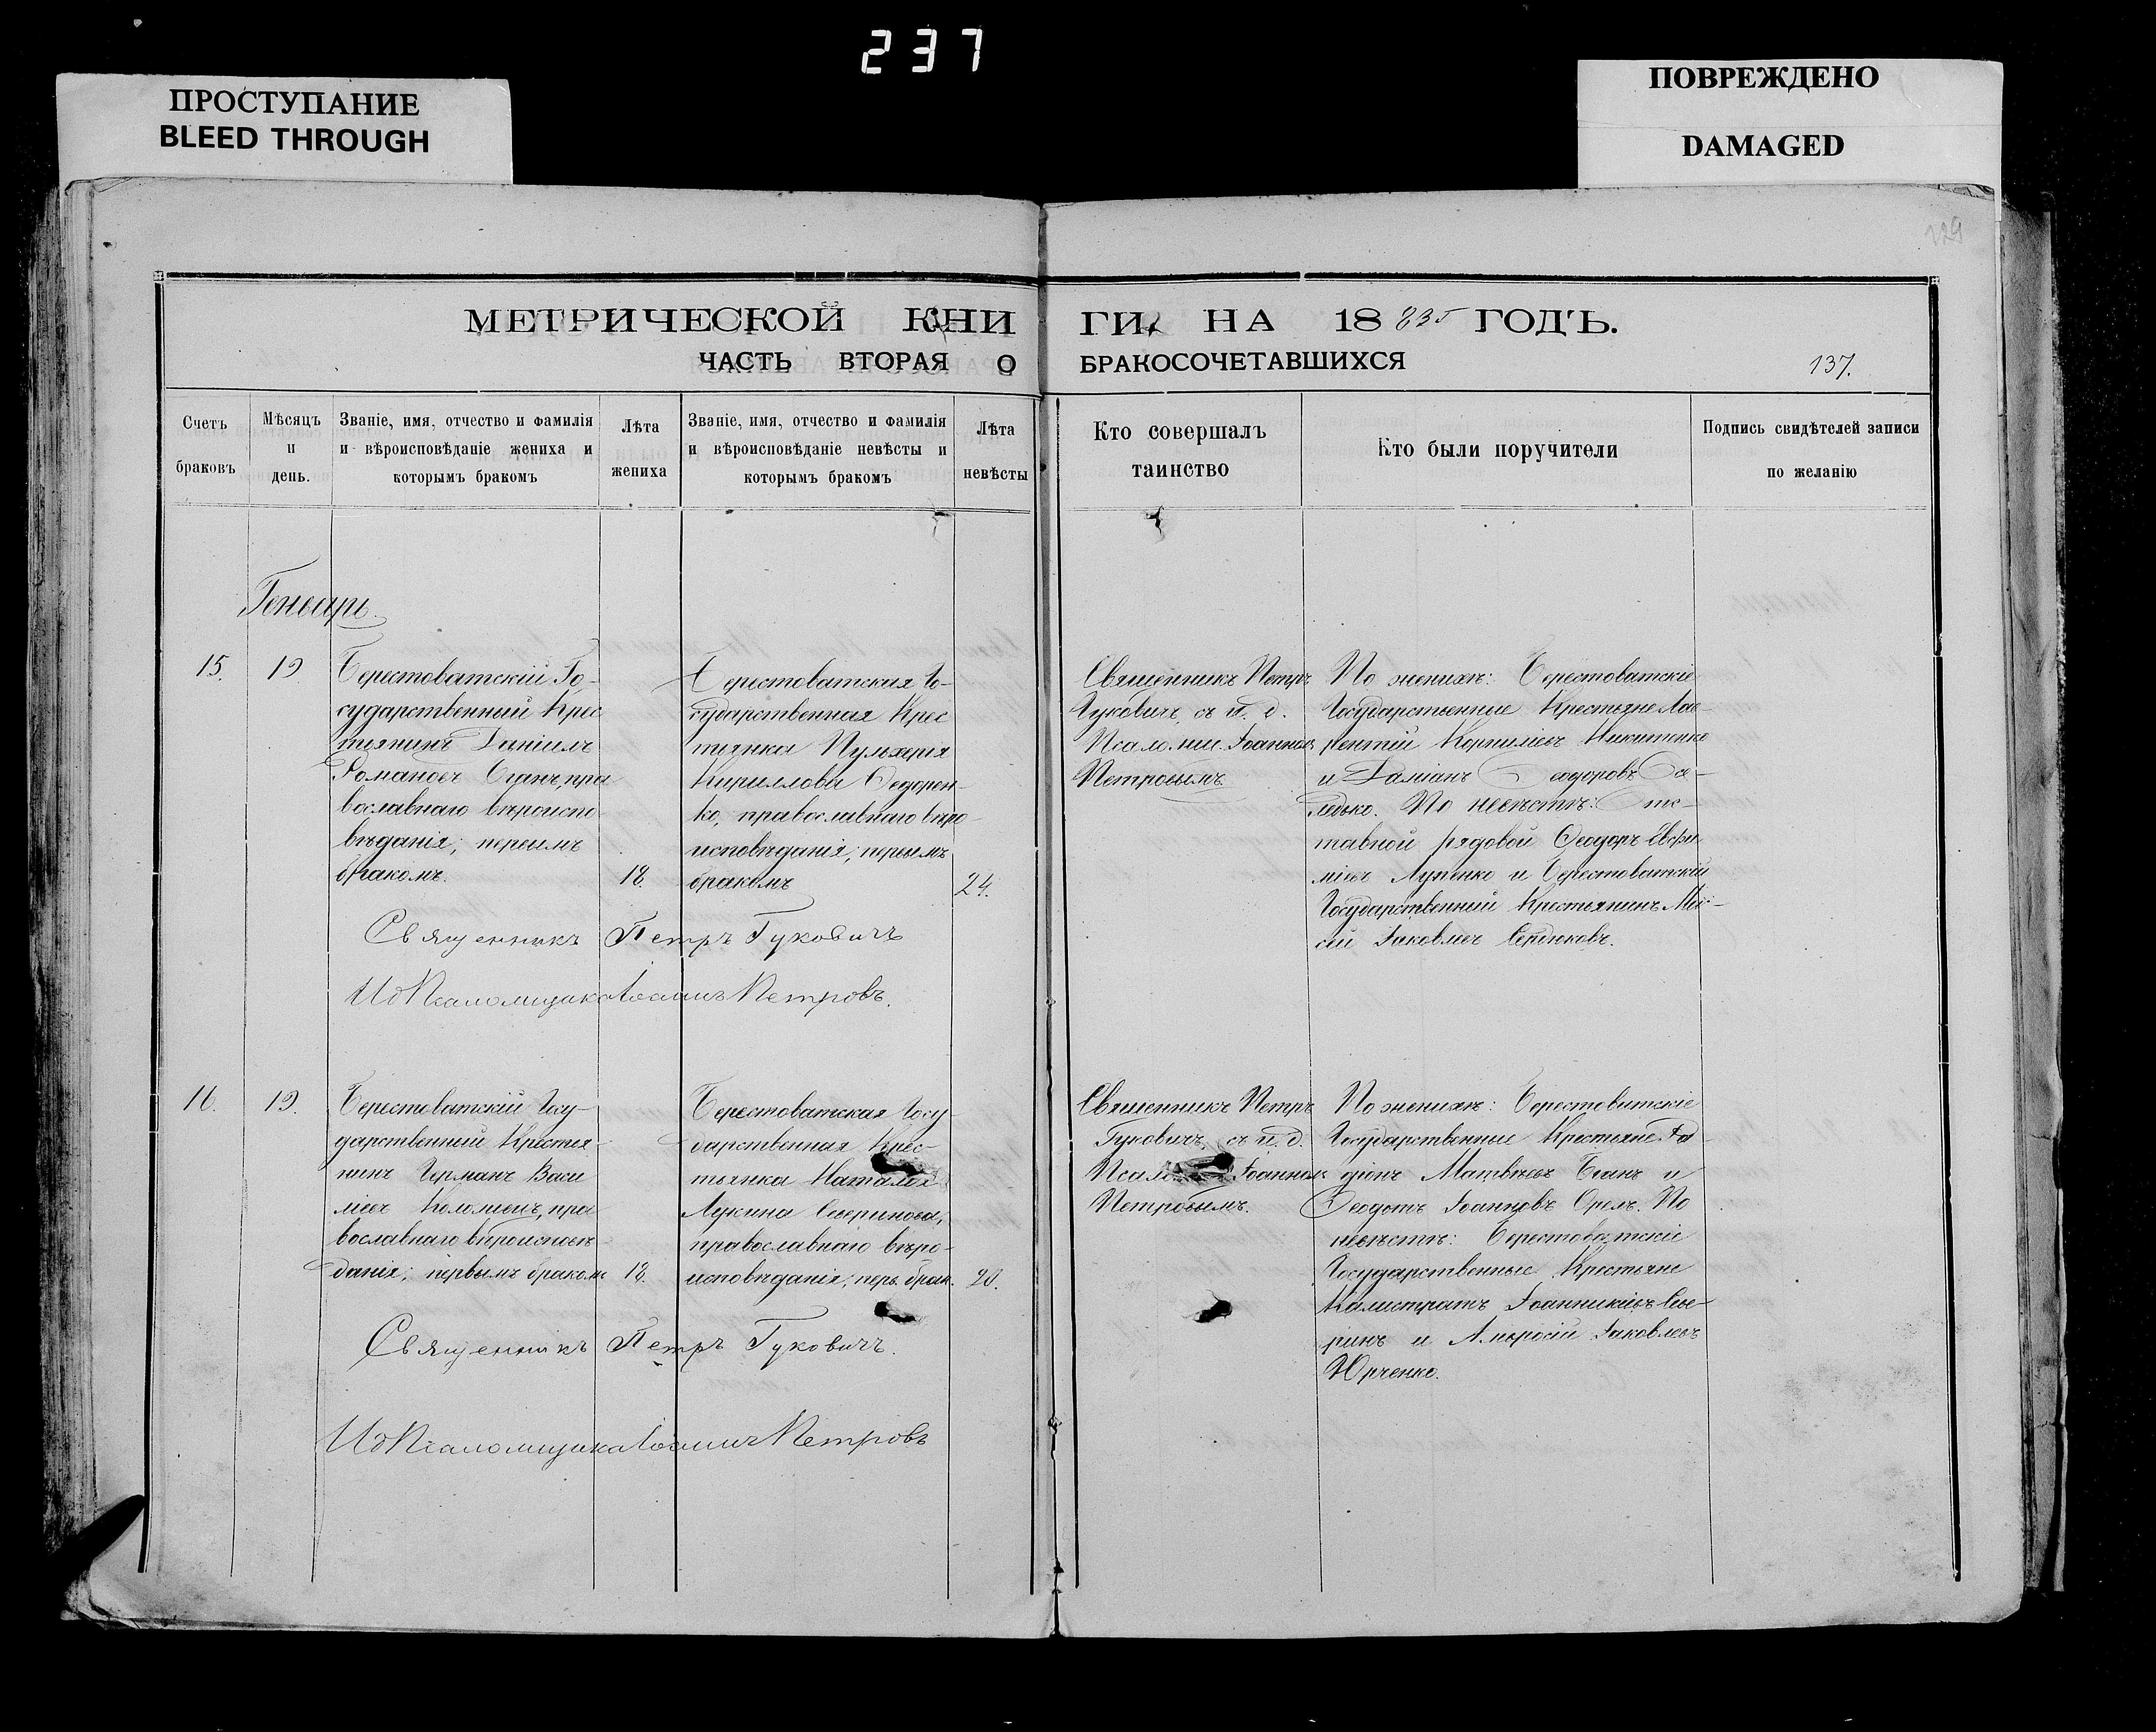 237
ПРОСТУПАНИЕ
BLEED THROUGH
ПОВРЕЖДЕНО
DAMAGED
129
МЕТРИЧЕСКОЙ КНИ ГИ, НА 18 835 ГОДЪ.
ЧАСТЬ ВТОРАЯ О БРАКОСОЧЕТАВШИХСЯ
137.
Счетъ
браковъ
Мѣсяцъ
и
день.
Званіе, имя, отчество и фамилія
и вѣроисповѣданіе жениха и
которымъ бракомъ
Лѣта
жениха
Званіе, имя, отчество и фамилія
и вѣроисповѣданіе невѣсты и
которымъ бракомъ
Лѣта
невѣсты
Кто совершалъ
таинство
Кто были поручители
Подпись свидѣтелей записи
по желанію
Генварь.
15.
19
Берестоватскій Го-
сударственный Крес
тьянинъ Даніилъ
Романовъ пра
вославнаго вѣроиспо-
вѣданія; первымъ
бракомъ.
18.
Берестоватская Го-
сударственная Крес
тьянка Пульхерія
Кириллова Федорен-
ко, православнаго вѣро-
исповѣданія; первымъ
бракомъ
24.
Священникъ Петръ
Гуковичъ, съ и. д.
Псалом. Іоанномъ
Петровымъ.
По женихѣ: Берестоватскіе
Государственные Крестьяне Лав-
рентій Корниліевъ Никитенко
и Даміанъ Ѳеодоровъ
По невѣстѣ: Отс-
тавной рядовой Ѳеодоръ Евфи-
міевъ Лупенко и Берестоватскій
Государственный Крестьянинъ Мои-
сей Іаковлевъ
Священникъ Петръ Гуковичъ
И д Псаломщика Іоаннъ Петровъ.
16.
19.
Берестоватскій Госу-
дарственный Крестья-
нинъ Германъ Васи
ліевъ Коломіецъ, пра-
вославнаго вѣроисповѣ-
данія; первымъ бракомъ
18.
Берестоватская Госу-
дарственная Крес-
тьянка Наталія
Лукина Северинова,
православнаго вѣро-
исповѣданія; перв. брак.
20.
Священникъ Петръ
Гуковичъ, съ и. д.
Псал Іоанномъ
Петровымъ.
По женихѣ: Берестоватскіе
Государственные Крестьяне Ро-
діонъ Матвѣевъ и
Ѳеодотъ Іоанновъ Орелъ. По
невѣстѣ: Берестоватскіе
Государственные Крестьяне
Калистратъ Іоанникіевъ Севе-
ринъ и Амвросій Іаковлевъ
Юрченко.
Священникъ Петръ Гуковичъ.
И д Псаломщика Іоаннъ Петровъ